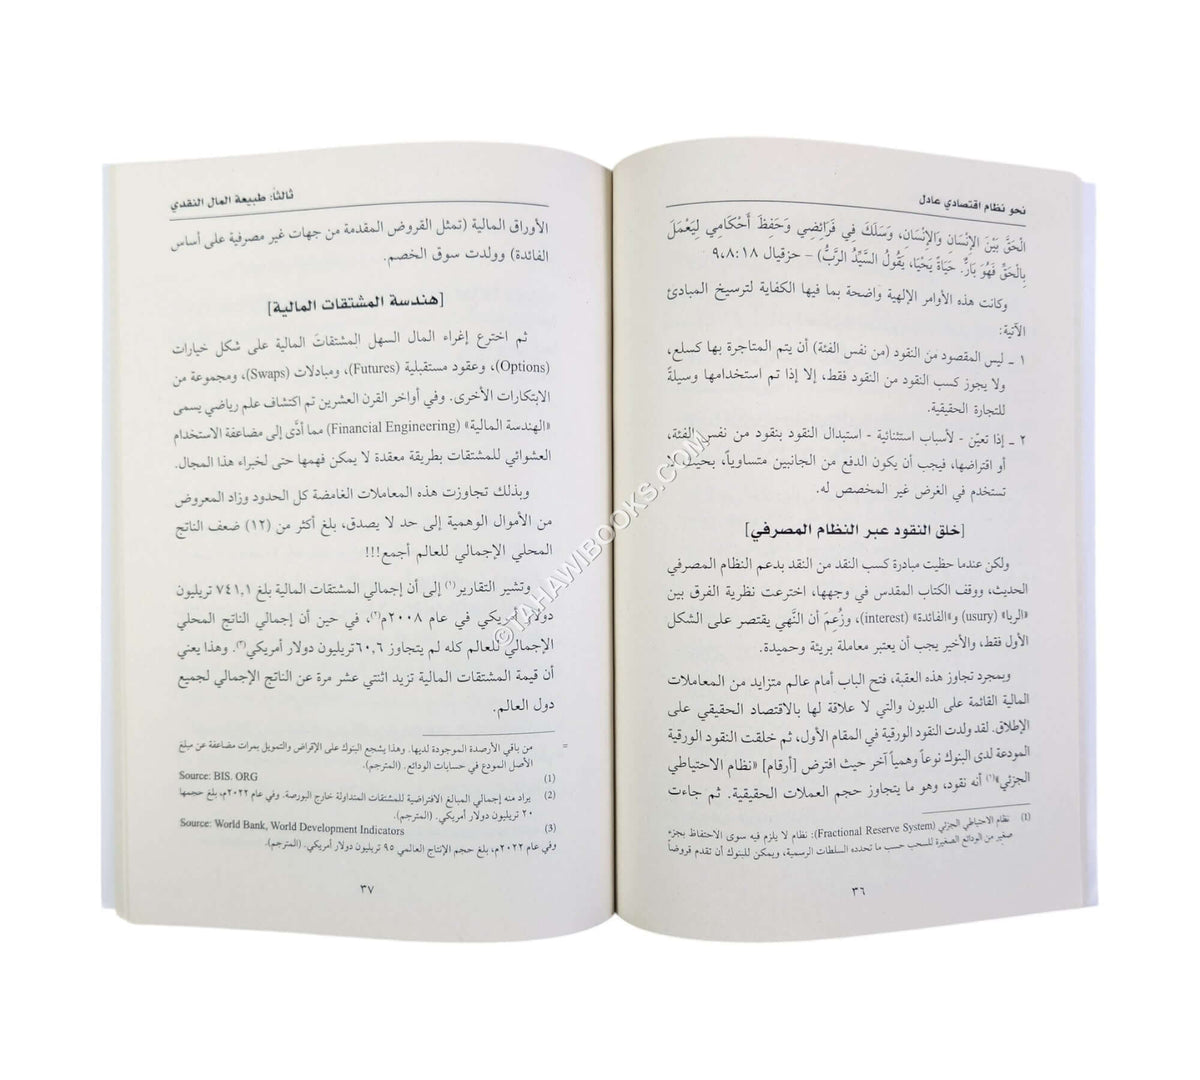 نحو نظام اقتصادي عادل
الْحَقَّ بَيْنَ الإِنْسَانِ وَالإِنْسَانِ، وَسَلَكَ فِي فَرَائِضِي وَحَفِظَ أَحْكَامِي لِيَعْمَلَ
بِالْحَقِّ فَهُوَ بَارٌّ. حَيَاةً يَحْيَا، يَقُولُ السَّيِّدُ الرَّبُّ) - حزقيال ٩،٨:١٨
وكانت هذه الأوامر الإلهية واضحة بما فيها الكفاية لترسيخ المبادئ
الآتية:
١ ـ ليس المقصود من النقود (من نفس الفئة) أن يتم المتاجرة بها كسلع،
ولا يجوز كسب النقود من النقود فقط، إلا إذا تم استخدامها وسيلةً
للتجارة الحقيقية.
٢ ـ إذا تعيّن - لأسباب استثنائية - استبدال النقود بنقود من نفس الفئة،
أو اقتراضها، فيجب أن يكون الدفع من الجانبين متساوياً، بحيث
تستخدم في الغرض غير المخصص له.
[خلق النقود عبر النظام المصرفي]
ولكن عندما حظيت مبادرة كسب النقد من النقد بدعم النظام المصرفي
الحديث، ووقف الكتاب المقدس في وجهها، اخترعت نظرية الفرق بين
«الربا» (usury) و«الفائدة» (interest)، وزُعِمَ أن النَّهي يقتصر على الشكل
الأول فقط، والأخير يجب أن يعتبر معاملة بريئة وحميدة.
وبمجرد تجاوز هذه العقبة، فتح الباب أمام عالم متزايد من المعاملات
المالية القائمة على الديون والتي لا علاقة لها بالاقتصاد الحقيقي على
الإطلاق. لقد ولدت النقود الورقية في المقام الأول، ثم خلقت النقود الورقية
المودعة لدى البنوك نوعاً وهمياً آخر حيث افترض [أرقام] «نظام الاحتياطي
الجزئي»(١) أنه نقود، وهو ما يتجاوز حجم العملات الحقيقية. ثم جاءت
(1) نظام الاحتياطي الجزئي (Fractional Reserve System): نظام لا يلزم فيه سوى الاحتفاظ بجزء
صغير من الودائع الصغيرة للسحب حسب ما تحدده السلطات الرسمية، ويمكن للبنوك أن تقدم قروضاً
٣٦
ثالثاً: طبيعة المال النقدي
الأوراق المالية (تمثل القروض المقدمة من جهات غير مصرفية على أساس
الفائدة) وولدت سوق الخصم.
[هندسة المشتقات المالية]
ثم اخترع إغراء المال السهل المشتقات المالية على شكل خيارات
(Options)، وعقود مستقبلية (Futures)، ومبادلات (Swaps)، ومجموعة من
الابتكارات الأخرى. وفي أواخر القرن العشرين تم اكتشاف علم رياضي يسمى
«الهندسة المالية» (Financial Engineering) مما أدَّى إلى مضاعفة الاستخدام
العشوائي للمشتقات بطريقة معقدة لا يمكن فهمها حتى لخبراء هذا المجال.
وبذلك تجاوزت هذه المعاملات الغامضة كل الحدود وزاد المعروض
من الأموال الوهمية إلى حد لا يصدق، بلغ أكثر من (١٢) ضعف الناتج
المحلي الإجمالي للعالم أجمع!!!
وتشير التقارير(١) إلى أن إجمالي المشتقات المالية بلغ ٧٤١,١ تريليون
دولار أمريكي في عام ٢٠٠٨م(٢)، في حين أن إجمالي الناتج المحلي
الإجمالي للعالم كله لم يتجاوز ٦٠,٦ تريليون دولار أمريكي(٣). وهذا يعني
أن قيمة المشتقات المالية تزيد اثنتي عشر مرة عن الناتج الإجمالي لجميع
دول العالم.
= من باقي الأرصدة الموجودة لديها. وهذا يشجع البنوك على الإقراض والتمويل بمرات مضاعفة عن مبلغ
الأصل المودع في حسابات الودائع. (المترجم).
(1) Source: BIS. ORG
(2) يراد منه إجمالي المبالغ الافتراضية للمشتقات المتداولة خارج البورصة. وفي عام ٢٠٢٢م، بلغ حجمها
٢٠ تريليون دولار أمريكي. (المترجم).
(3) Source: World Bank, World Development Indicators
وفي عام ٢٠٢٢م، بلغ حجم الإنتاج العالمي ٩٥ تريليون دولار أمريكي. (المترجم).
٣٧
©TAHAWIBOOKS.COM